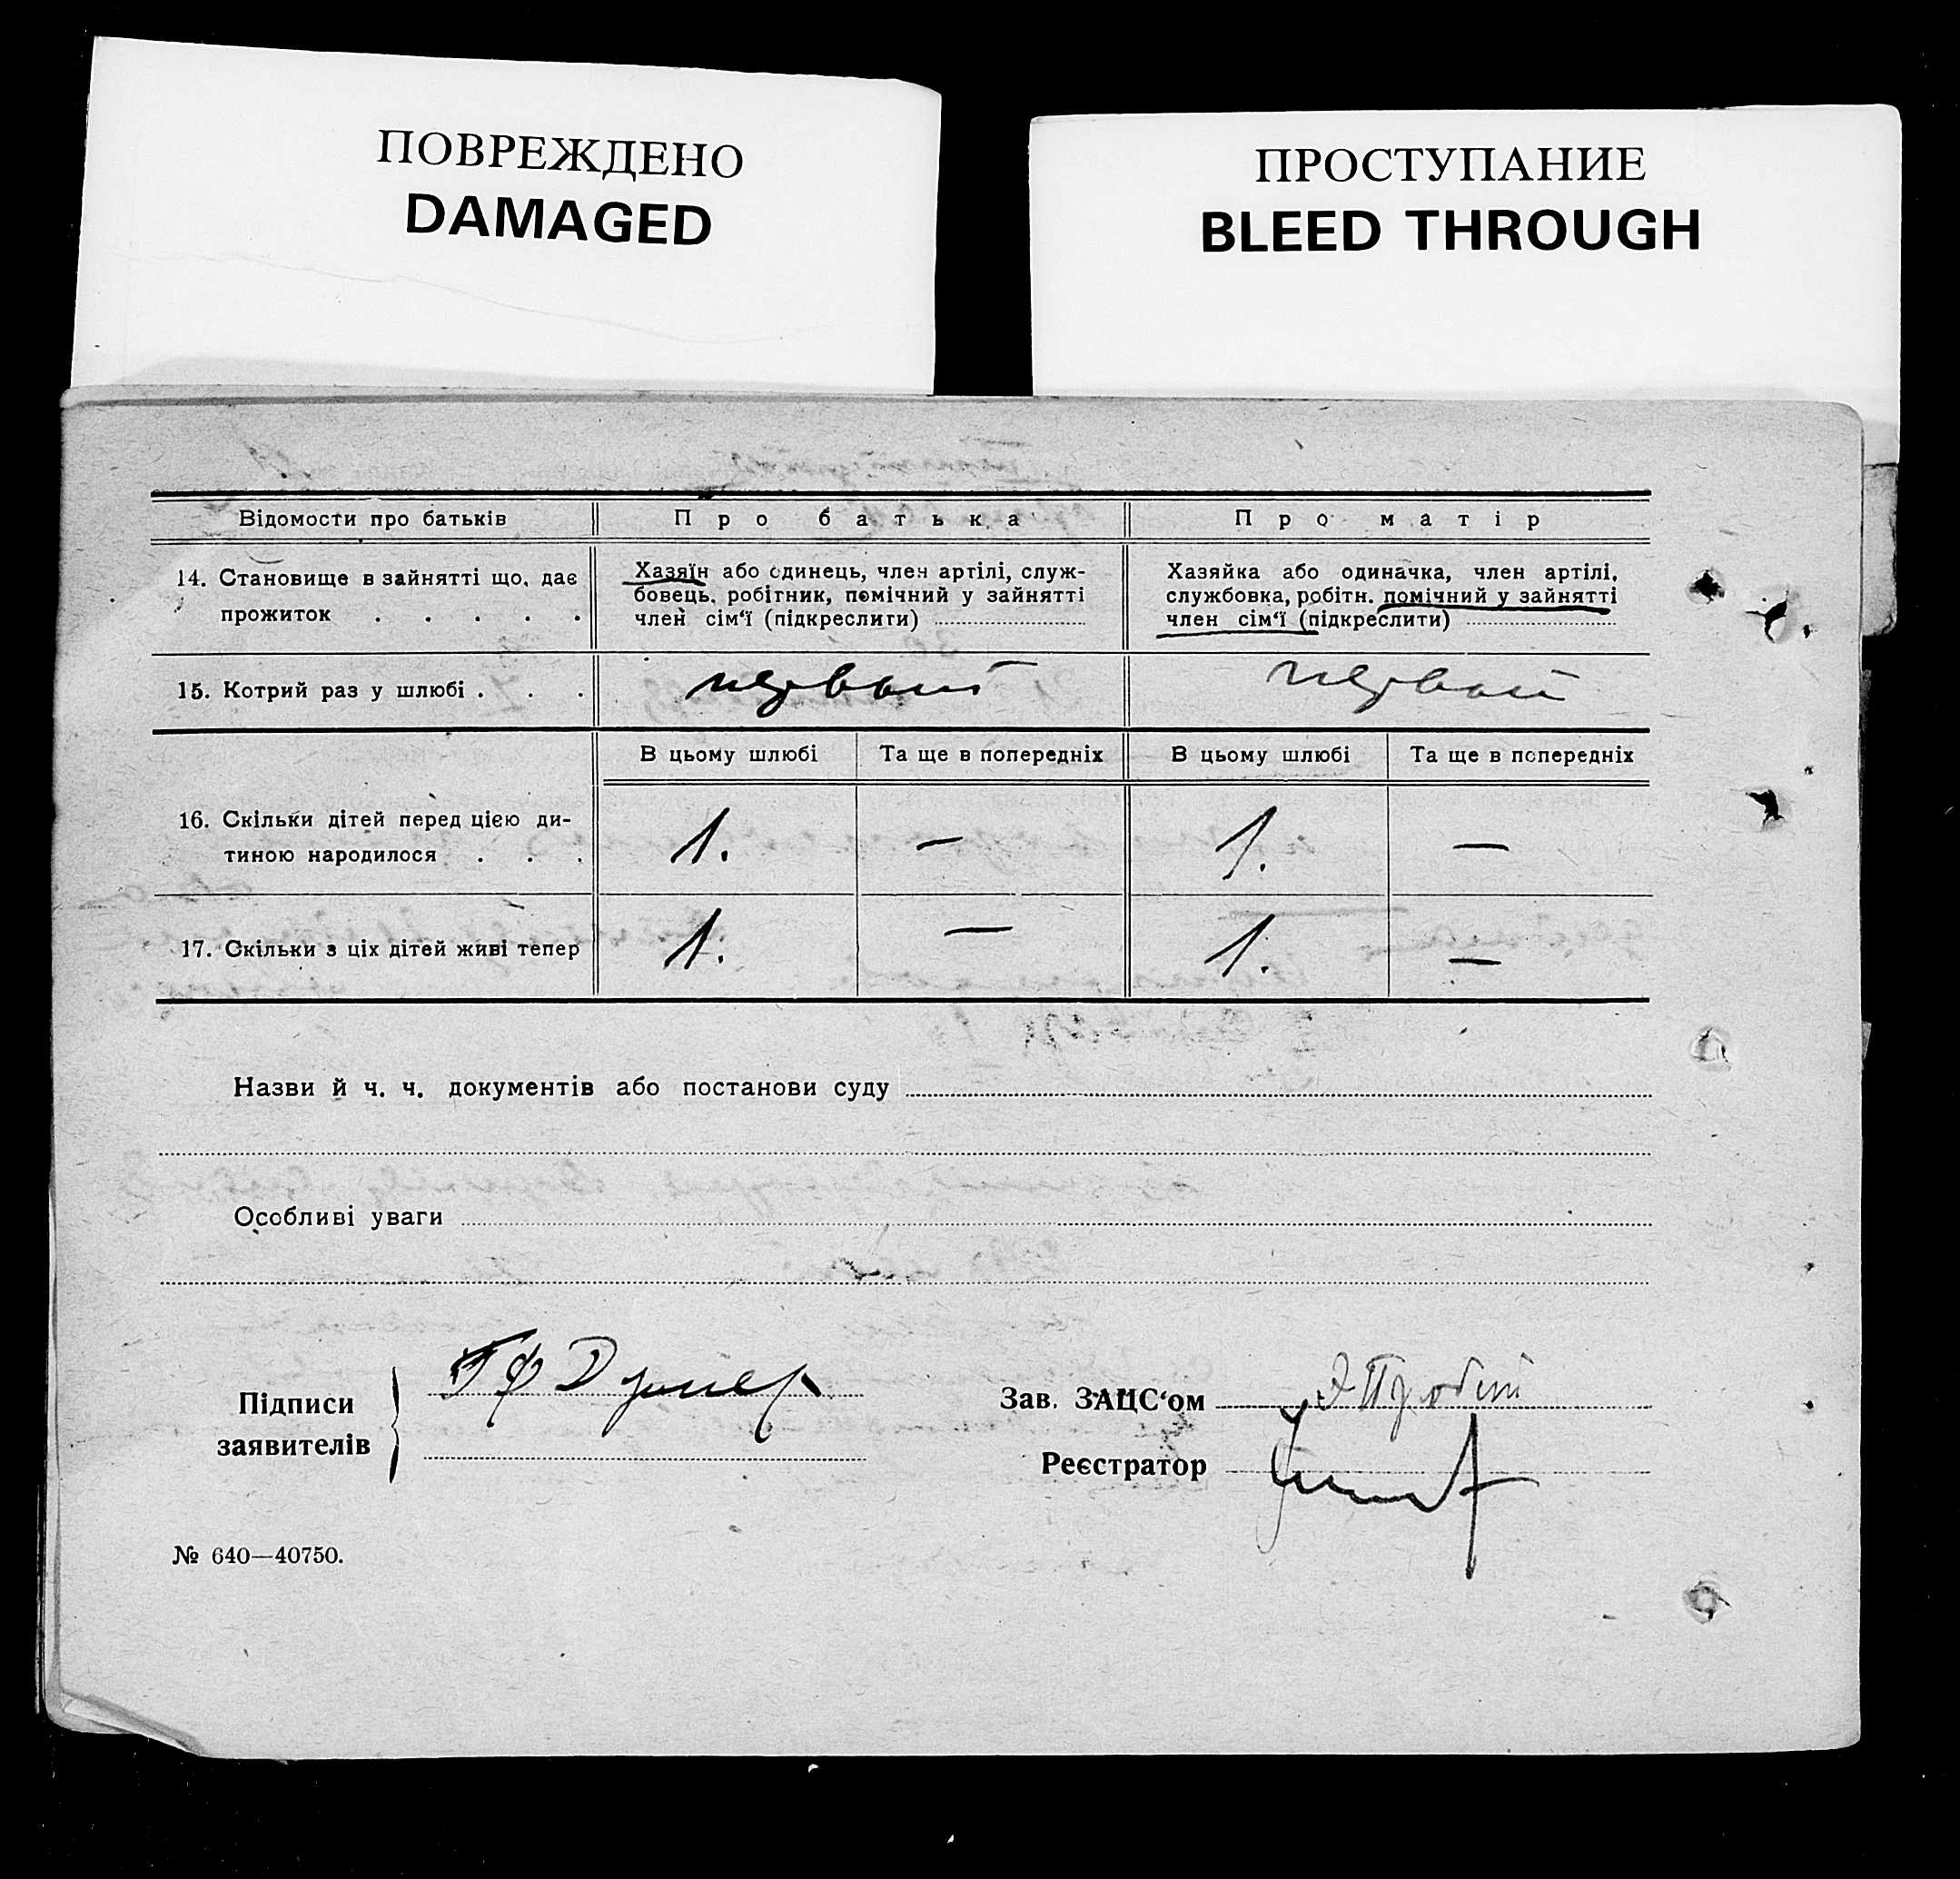 ПОВРЕЖДЕНО
DAMAGED
ПРОСТУПАНИЕ
BLEED THROUGH
Відомости про батьків Про батька Про матір
14. Становище в зайнятті що, дає
прожиток . . . . .
Хазяїн або одинець, член артілі, служ-
бовець, робітник, помічний у зайнятті
член сім‘ї (підкреслити)
Хазяйка або одиначка, член артілі,
службовка, робітн. помічний у зайнятті
член сім‘ї (підкреслити)
15. Котрий раз у шлюбі . . . первый первый
В цьому шлюбі Та ще в попередніх В цьому шлюбі Та ще в попередніх
16. Скільки дітей перед цією ди-
тиною народилося . . . 1. — 1. —
17. Скільки з ціх дітей живі тепер 1. — 1. —
Назви й ч. ч. документів або постанови суду
Особливі уваги
Підписи
заявителів
Зав. ЗАЦС‘ом
Реєстратор
№ 640—40750.